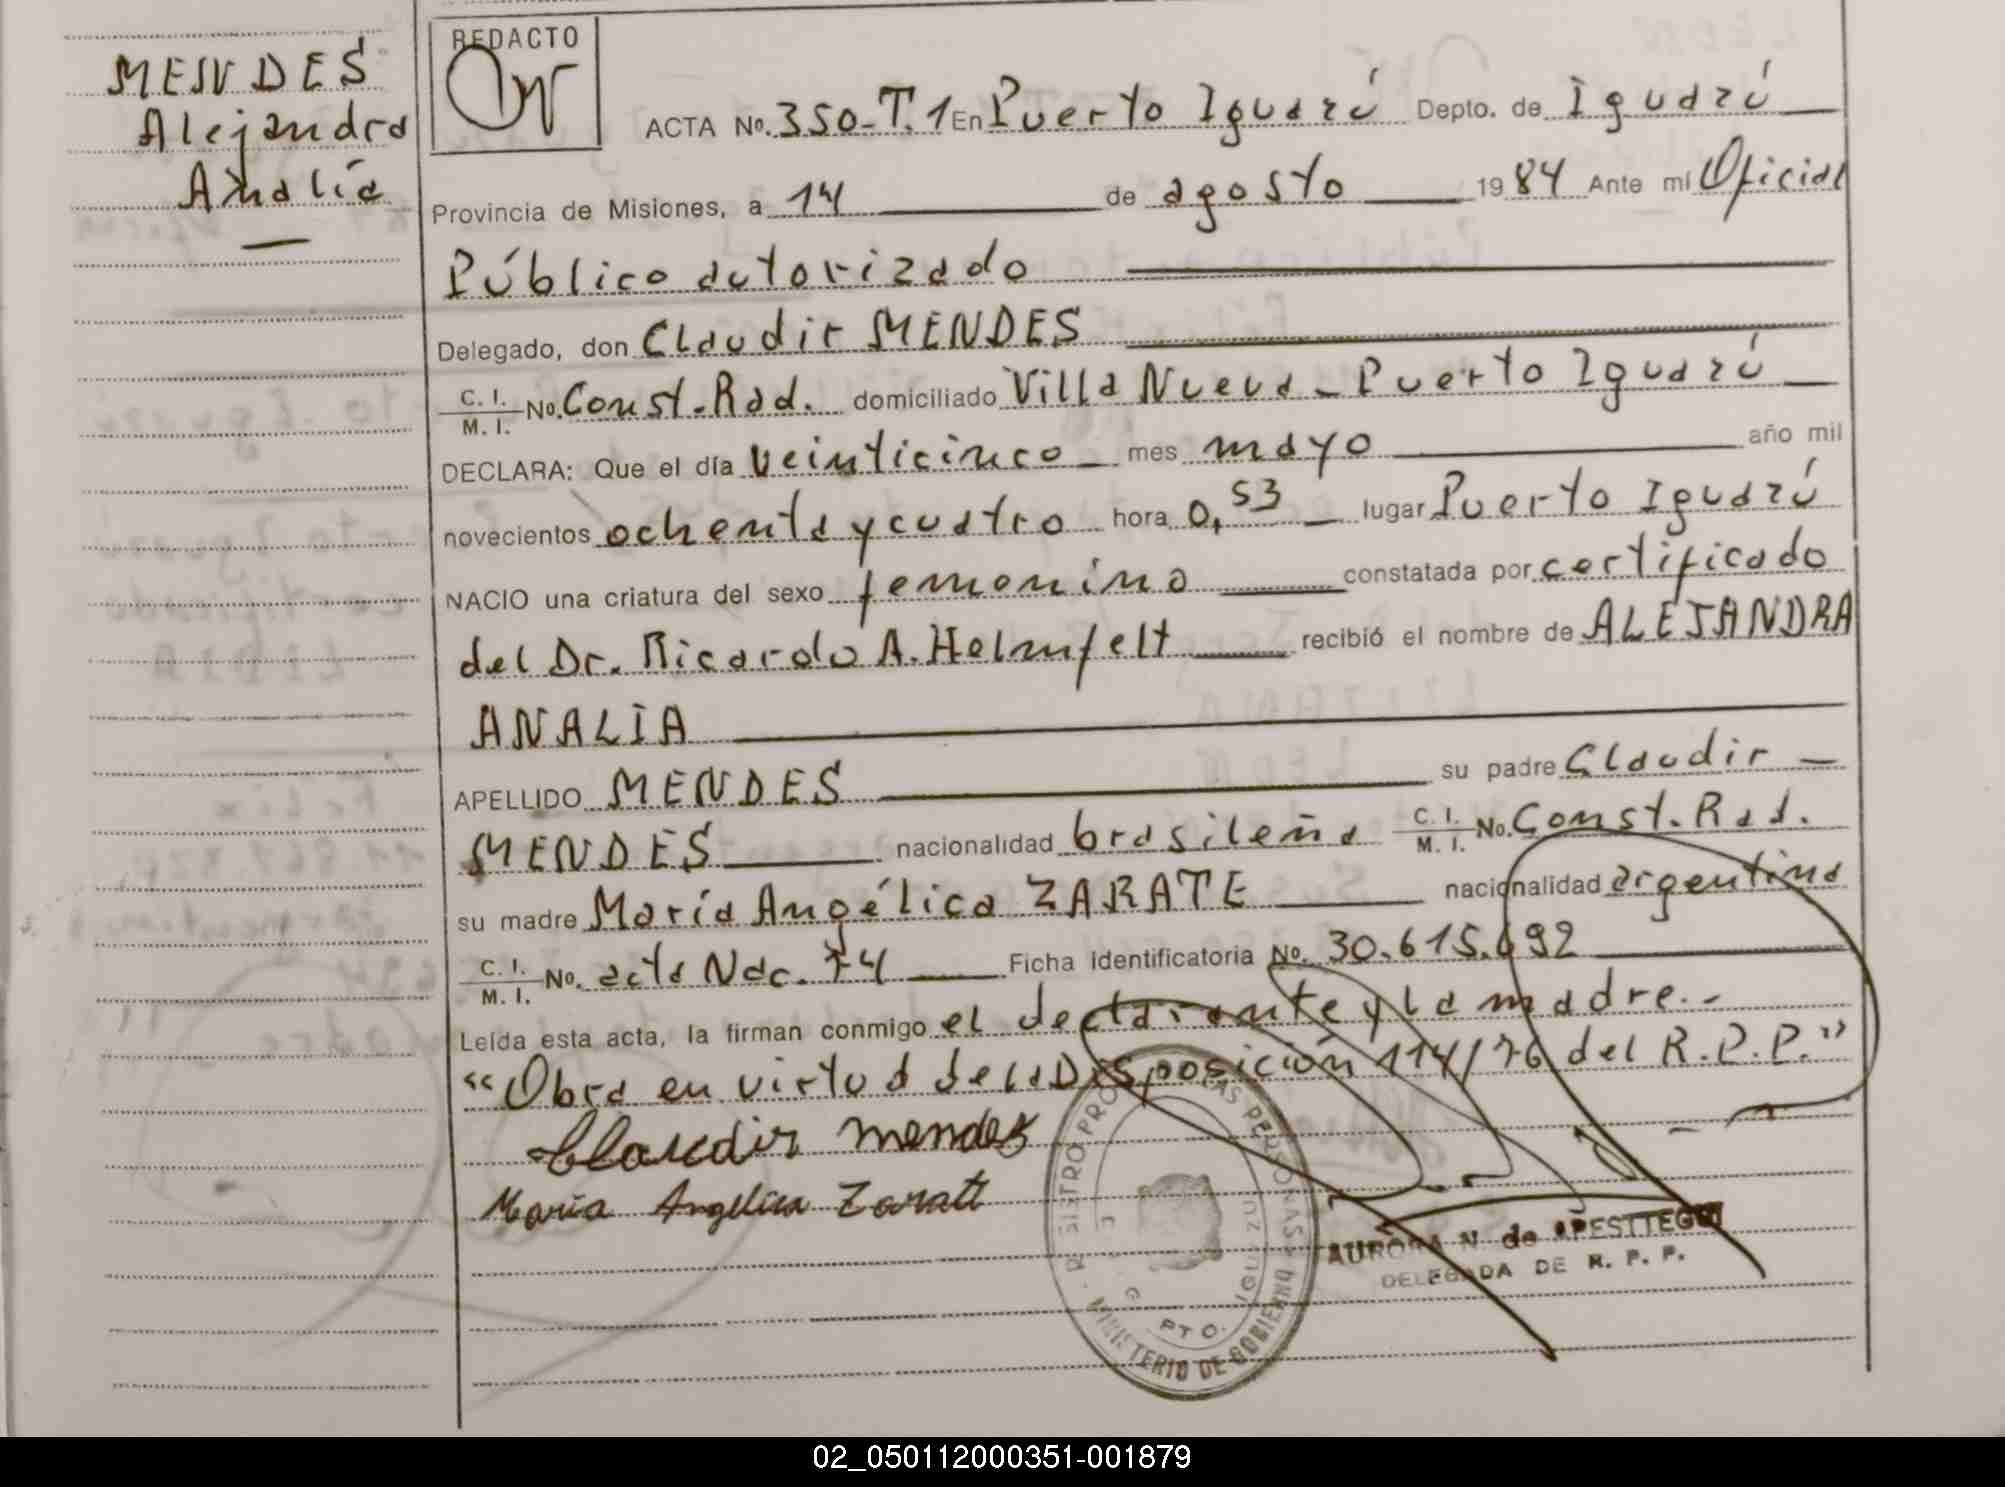 MENDES
Alejandra
Analía
REDACTO
ACTA No. 350-T.1 En Puerto Iguazú Depto. de Iguazú
Provincia de Misiones, a 14 de agosto 1984 Ante mí Oficial
Público autorizado
Delegado, don Claudir MENDES
C. I. / M. I. No. Const. Rad. domiciliado Villa Nueva - Puerto Iguazú
DECLARA: Que el día veinticinco mes mayo año mil
novecientos ochenta y cuatro hora 0,53 lugar Puerto Iguazú
NACIO una criatura del sexo femenino constatada por certificado
del Dr. Ricardo A. Helmfelt recibió el nombre de ALEJANDRA
ANALIA
APELLIDO MENDES su padre Claudir
MENDES nacionalidad brasileña C. I. / M. I. No. Const. Rad.
su madre María Angélica ZARATE nacionalidad argentina
C. I. / M. I. No. acta Nac. 74 Ficha Identificatoria No. 30.615.692
Leída esta acta, la firman conmigo el declarante y la madre.-
"Obra en virtud de la Disposición 114/76 del R.P.P."
Claudir mendes
María Angélica Zaratt
AURORA N. de APESTTEGUI
DELEGADA DE R. P. P.
REGISTRO PRO LAS PERSONAS
PTO. IGUAZU
MINISTERIO DE GOBIERNO
02_050112000351-001879